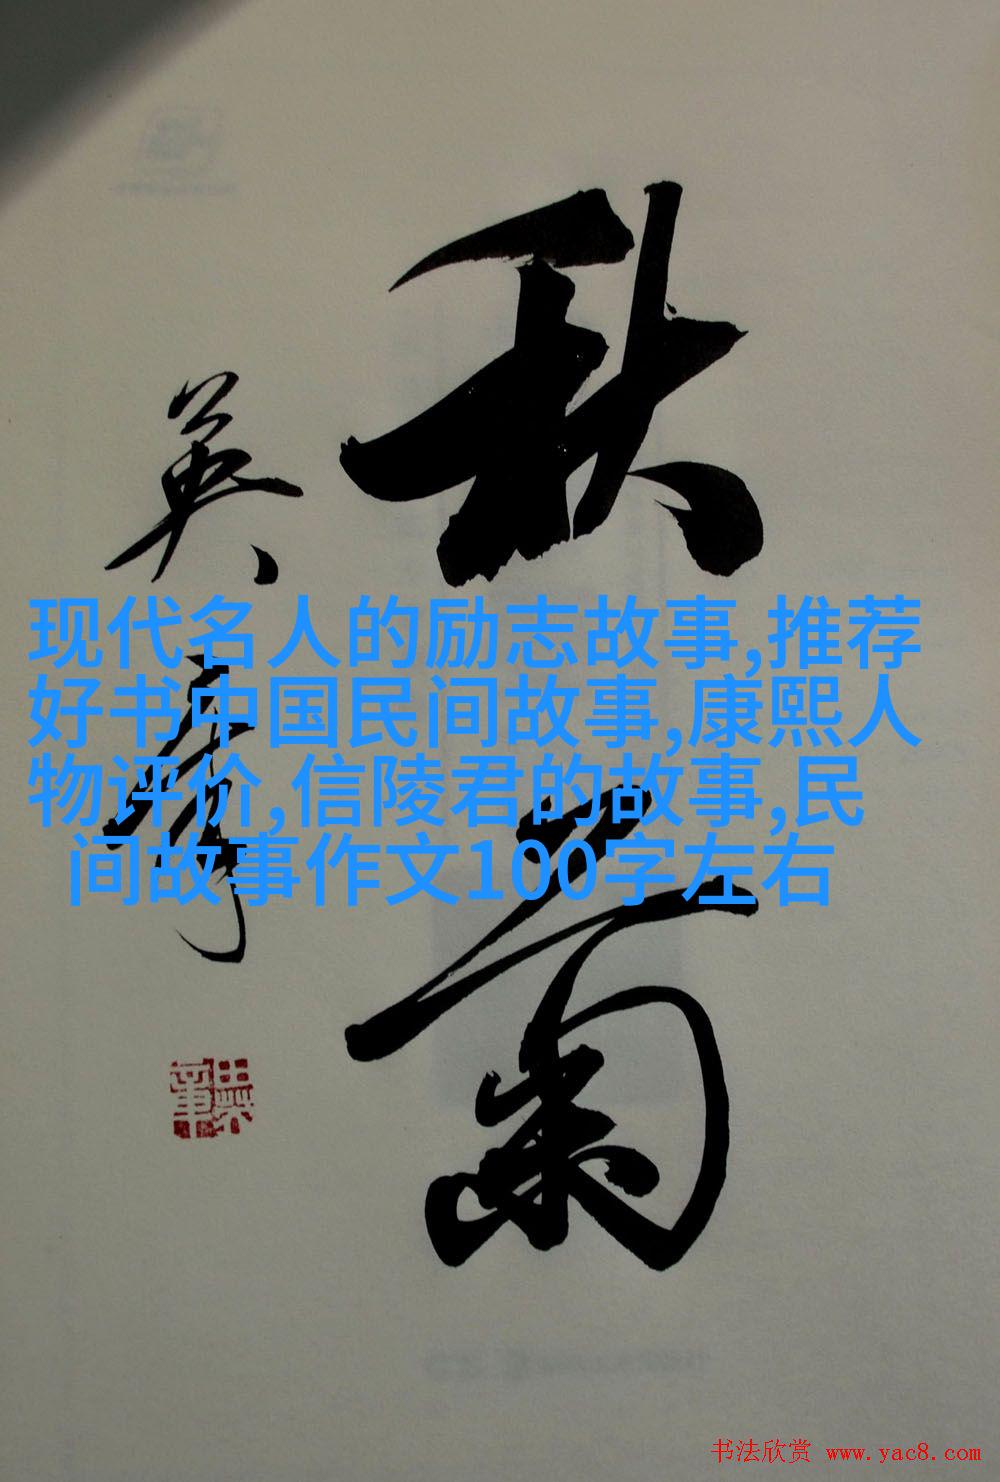 秋之菊
英章
现代名人的励志故事,推荐
好书中国民间故事,康熙人
物评价,信陵君的故事,民
间故事作文100字左右
书法欣赏 www.yac8.com